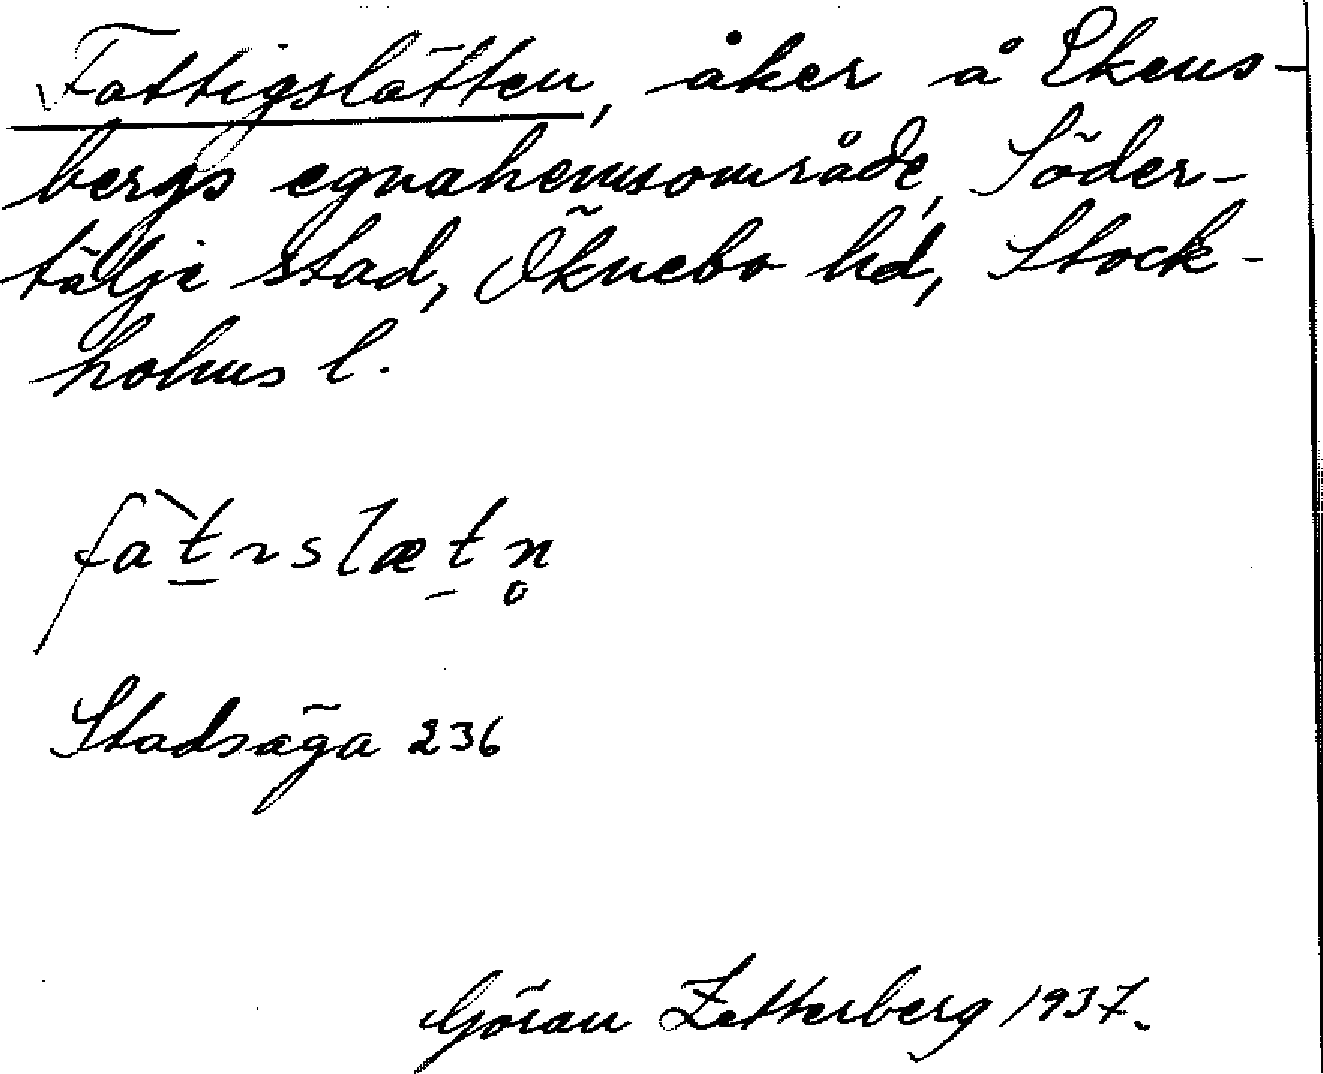 Fattigslätten, åker å Ekens-
bergs egnahemsområde, Söder-
tälje stad, Öknebo hd, Stock-
holms l.
Stadsäga 236
Göran Zetterberg 1937.